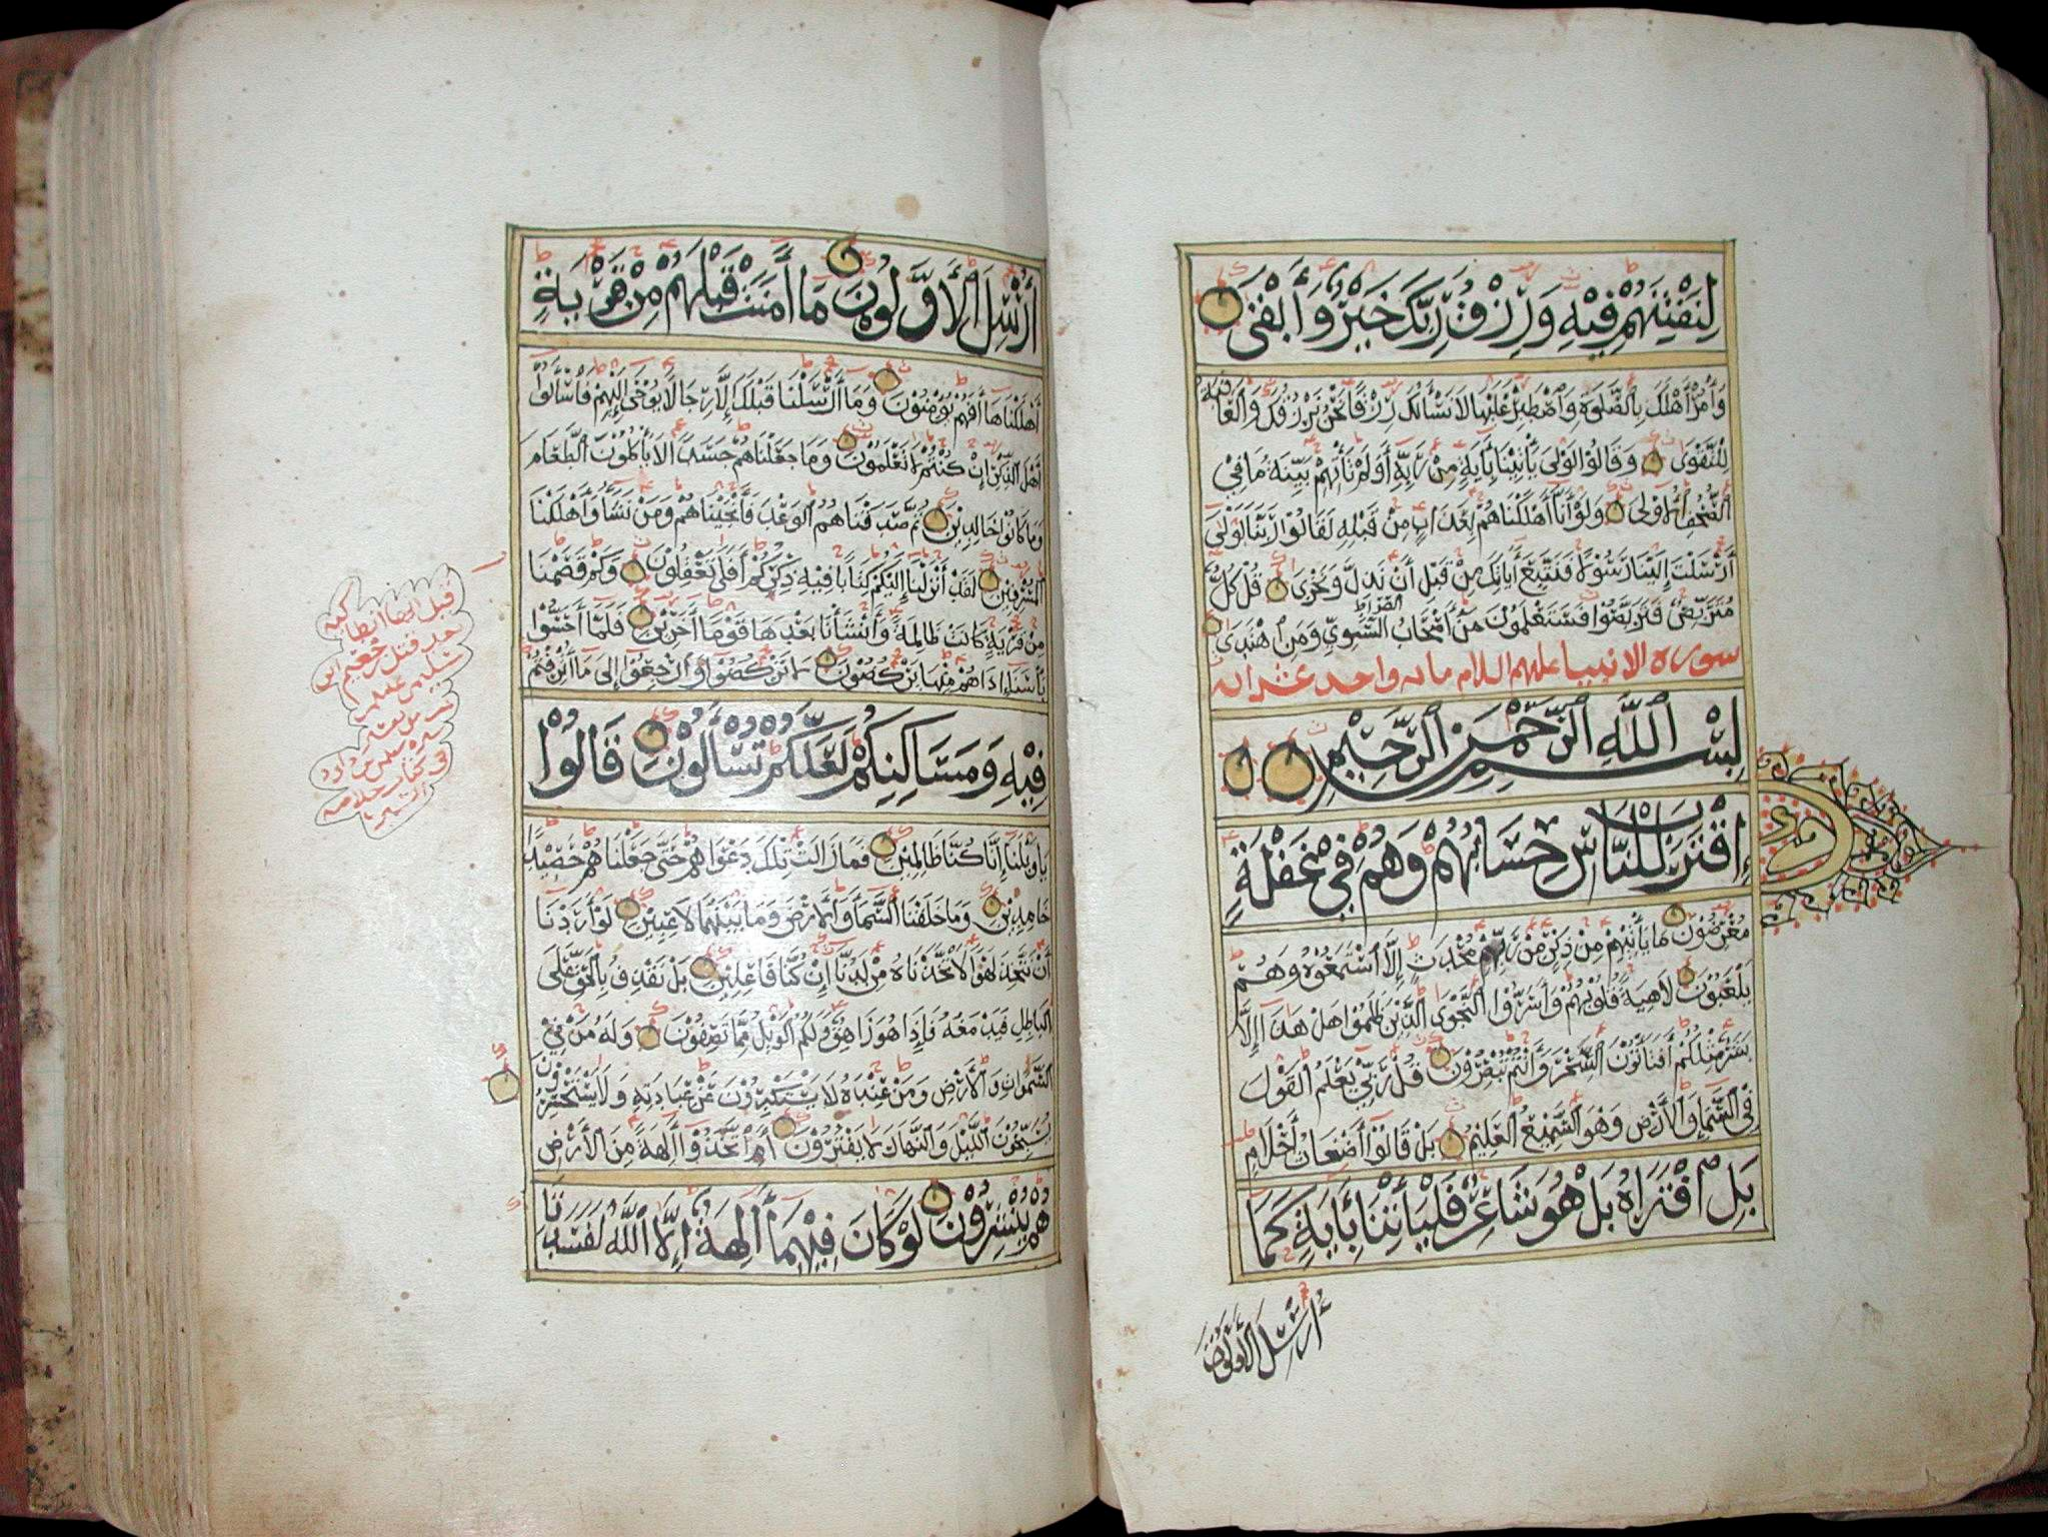 لِنَفْتِنَهُمْ فِيْهِ وَرِزْقُ رَبِّكَ خَيْرٌ وَأَبْقَى
وَأْمُرْ أَهْلَكَ بِالصَّلَوةِ وَاصْطَبِرْ عَلَيْهَا لَا نَسْأَلُكَ رِزْقًا نَحْنُ نَرْزُقُكَ وَالْعَاقِبَةُ
لِلتَّقْوَى وَقَالُوْا لَوْلَا يَأْتِيْنَا بِآيَةٍ مِنْ رَبِّهِ أَوَلَمْ تَأْتِهِمْ بَيِّنَةُ مَا فِي
الصُّحُفِ الْأُوْلَى وَلَوْ أَنَّا أَهْلَكْنَاهُمْ بِعَذَابٍ مِنْ قَبْلِهِ لَقَالُوْا رَبَّنَا لَوْلَا
أَرْسَلْتَ إِلَيْنَا رَسُوْلًا فَنَتَّبِعَ أَيَاتِكَ مِنْ قَبْلِ أَنْ نَذِلَّ وَنَخْزَى قُلْ كُلٌّ
مُتَرَبِّصٌ فَتَرَبَّصُوْا فَسَتَعْلَمُوْنَ مَنْ أَصْحَابُ الصِّرَاطِ السَّوِيِّ وَمَنِ اهْتَدَى
سورة الانبيا عليهم السلام مائة واحد عشر اية
بِسْمِ اللَّهِ الرَّحْمٰنِ الرَّحِيْمِ
اِقْتَرَبَ لِلنَّاسِ حِسَابُهُمْ وَهُمْ فِي غَفْلَةٍ
مُعْرِضُوْنَ مَا يَأْتِيْهِمْ مِنْ ذِكْرٍ مِنْ رَبِّهِمْ مُحْدَثٍ إِلَّا اسْتَمَعُوْهُ وَهُمْ
يَلْعَبُوْنَ لَاهِيَةً قُلُوْبُهُمْ وَأَسَرُّوْا النَّجْوَى الَّذِيْنَ ظَلَمُوْا هَلْ هَذَا إِلَّا
بَشَرٌ مِثْلُكُمْ أَفَتَأْتُوْنَ السِّحْرَ وَأَنْتُمْ تُبْصِرُوْنَ قُلْ رَبِّيْ يَعْلَمُ الْقَوْلَ
فِي السَّمَاءِ وَالْأَرْضِ وَهُوَ السَّمِيْعُ الْعَلِيْمُ بَلْ قَالُوْا أَضْغَاثُ أَحْلَامٍ
بَلِ افْتَرَاهُ بَلْ هُوَ شَاعِرٌ فَلْيَأْتِنَا بِأَيَةٍ كَمَا
أُرْسِلَ الْأَوَّلُوْنَ
أُرْسِلَ الْأَوَّلُوْنَ مَا أَمَنَتْ قَبْلَهُمْ مِنْ قَرْيَةٍ
أَهْلَكْنَاهَا أَفَهُمْ يُؤْمِنُوْنَ وَمَا أَرْسَلْنَا قَبْلَكَ إِلَّا رِجَالًا يُوْحَى إِلَيْهِمْ فَاسْأَلُوْا
أَهْلَ الذِّكْرِ إِنْ كُنْتُمْ لَا تَعْلَمُوْنَ وَمَا جَعَلْنَاهُمْ جَسَدًا لَا يَأْكُلُوْنَ الطَّعَامَ
وَمَا كَانُوْا خَالِدِيْنَ ثُمَّ صَدَقْنَاهُمُ الْوَعْدَ فَأَنْجَيْنَاهُمْ وَمَنْ نَشَاءُ وَأَهْلَكْنَا
الْمُسْرِفِيْنَ لَقَدْ أَنْزَلْنَا إِلَيْكُمْ كِتَابًا فِيْهِ ذِكْرُكُمْ أَفَلَا تَعْقِلُوْنَ وَكَمْ قَصَمْنَا
مِنْ قَرْيَةٍ كَانَتْ ظَالِمَةً وَأَنْشَأْنَا بَعْدَهَا قَوْمًا أَخَرِيْنَ فَلَمَّا أَحَسُّوْا
بَأْسَنَا إِذَا هُمْ مِنْهَا يَرْكُضُوْنَ لَا تَرْكُضُوْا وَارْجِعُوْا إِلَى مَا أُتْرِفْتُمْ
فِيْهِ وَمَسَاكِنِكُمْ لَعَلَّكُمْ تُسْأَلُوْنَ قَالُوْا
يَاوَيْلَنَا إِنَّا كُنَّا ظَالِمِيْنَ فَمَا زَالَتْ تِلْكَ دَعْوَاهُمْ حَتَّى جَعَلْنَاهُمْ حَصِيْدًا
خَامِدِيْنَ وَمَا خَلَقْنَا السَّمَاءَ وَالْأَرْضَ وَمَا بَيْنَهُمَا لَاعِبِيْنَ لَوْ أَرَدْنَا
أَنْ نَتَّخِذَ لَهْوًا لَاتَّخَذْنَاهُ مِنْ لَدُنَّا إِنْ كُنَّا فَاعِلِيْنَ بَلْ نَقْذِفُ بِالْحَقِّ عَلَى
الْبَاطِلِ فَيَدْمَغُهُ فَإِذَا هُوَ زَاهِقٌ وَلَكُمُ الْوَيْلُ مِمَّا تَصِفُوْنَ وَلَهُ مَنْ فِيْ
السَّمٰوَاتِ وَالْأَرْضِ وَمَنْ عِنْدَهُ لَا يَسْتَكْبِرُوْنَ عَنْ عِبَادَتِهِ وَلَا يَسْتَحْسِرُوْنَ
يُسَبِّحُوْنَ اللَّيْلَ وَالنَّهَارَ لَا يَفْتُرُوْنَ أَمِ اتَّخَذُوْا أَلِهَةً مِنَ الْأَرْضِ
هُمْ يُنْشِرُوْنَ لَوْ كَانَ فِيْهِمَا أَلِهَةٌ إِلَّا اللَّهُ لَفَسَدَتَا